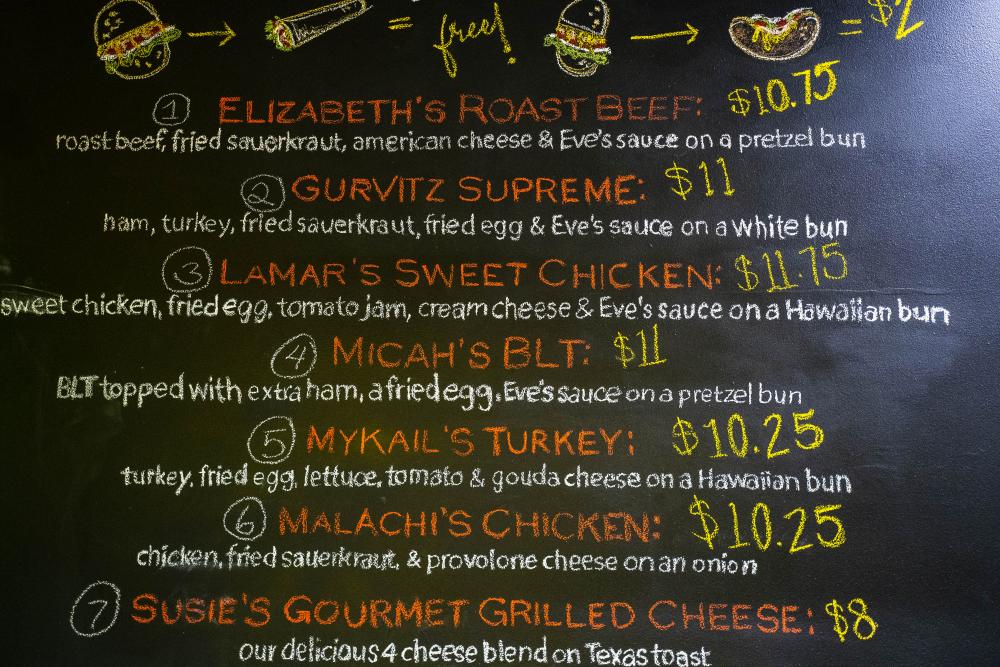 = free! = $2
1 ELIZABETH'S ROAST BEEF: $10.75
roast beef, fried sauerkraut, american cheese & Eve's sauce on a pretzel bun
2 GURVITZ SUPREME: $11
ham, turkey, fried sauerkraut, fried egg & Eve's sauce on a white bun
3 LAMAR'S SWEET CHICKEN: $11.75
sweet chicken, fried egg, tomato jam, cream cheese & Eve's sauce on a Hawaiian bun
4 MICAH'S BLT: $11
BLT topped with extra ham, a fried egg. Eve's sauce on a pretzel bun
5 MYKAIL'S TURKEY: $10.25
turkey, fried egg, lettuce, tomato & gouda cheese on a Hawaiian bun
6 MALACHI'S CHICKEN: $10.25
chicken, fried sauerkraut, & provolone cheese on an onion
7 SUSIE'S GOURMET GRILLED CHEESE: $8
our delicious 4 cheese blend on Texas toast